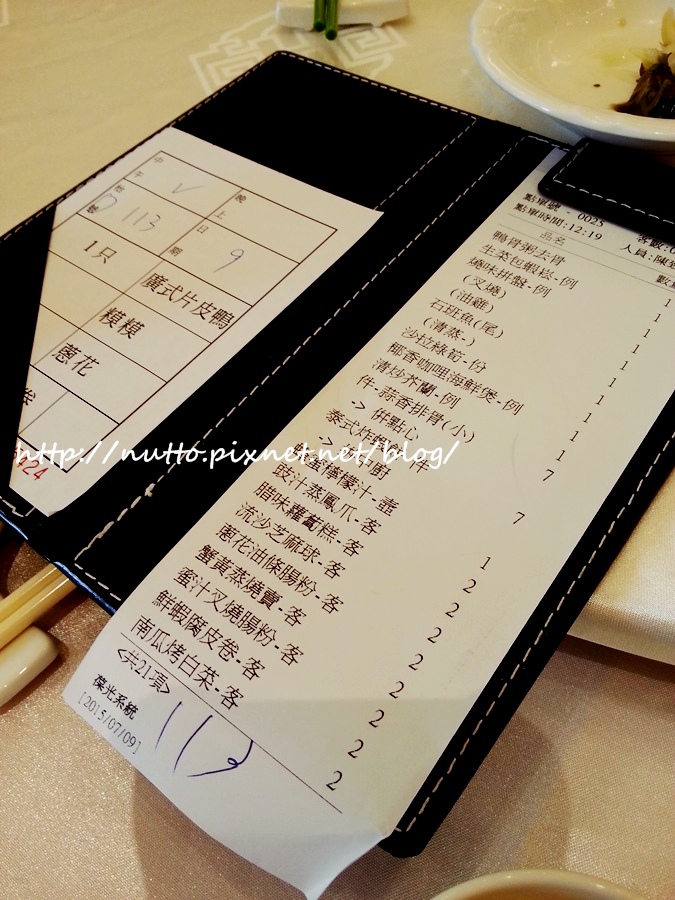 中午
✓
晚上
枱號
113
日期
9
1只
廣式片皮鴨
糢糢
蔥花
424
點單號 - 0025
點單時間:12:19
人員:陳
品名
鴨骨粥去骨 1
生菜包蝦崧-例 1
燒味拼盤-例 1
(叉燒)
(油雞)
石班魚(尾) 1
(清蒸-)
沙拉綠筍-份 1
椰香咖哩海鮮煲-例 1
清炒芥蘭-例 1
件-蒜香排骨(小) 7
-> 併點心
泰式炸 件 7
->
蜜檸檬汁-壺 1
豉汁蒸鳳爪-客 2
腊味蘿蔔糕-客 2
流沙芝麻球-客 2
蔥花油條腸粉-客 2
蟹黃蒸燒賣-客 2
蜜汁叉燒腸粉-客 2
鮮蝦腐皮卷-客 2
南瓜烤白菜-客 2
<共21項>
葆光系統
[2015/07/09]
113
http://nutto.pixnet.net/blog/